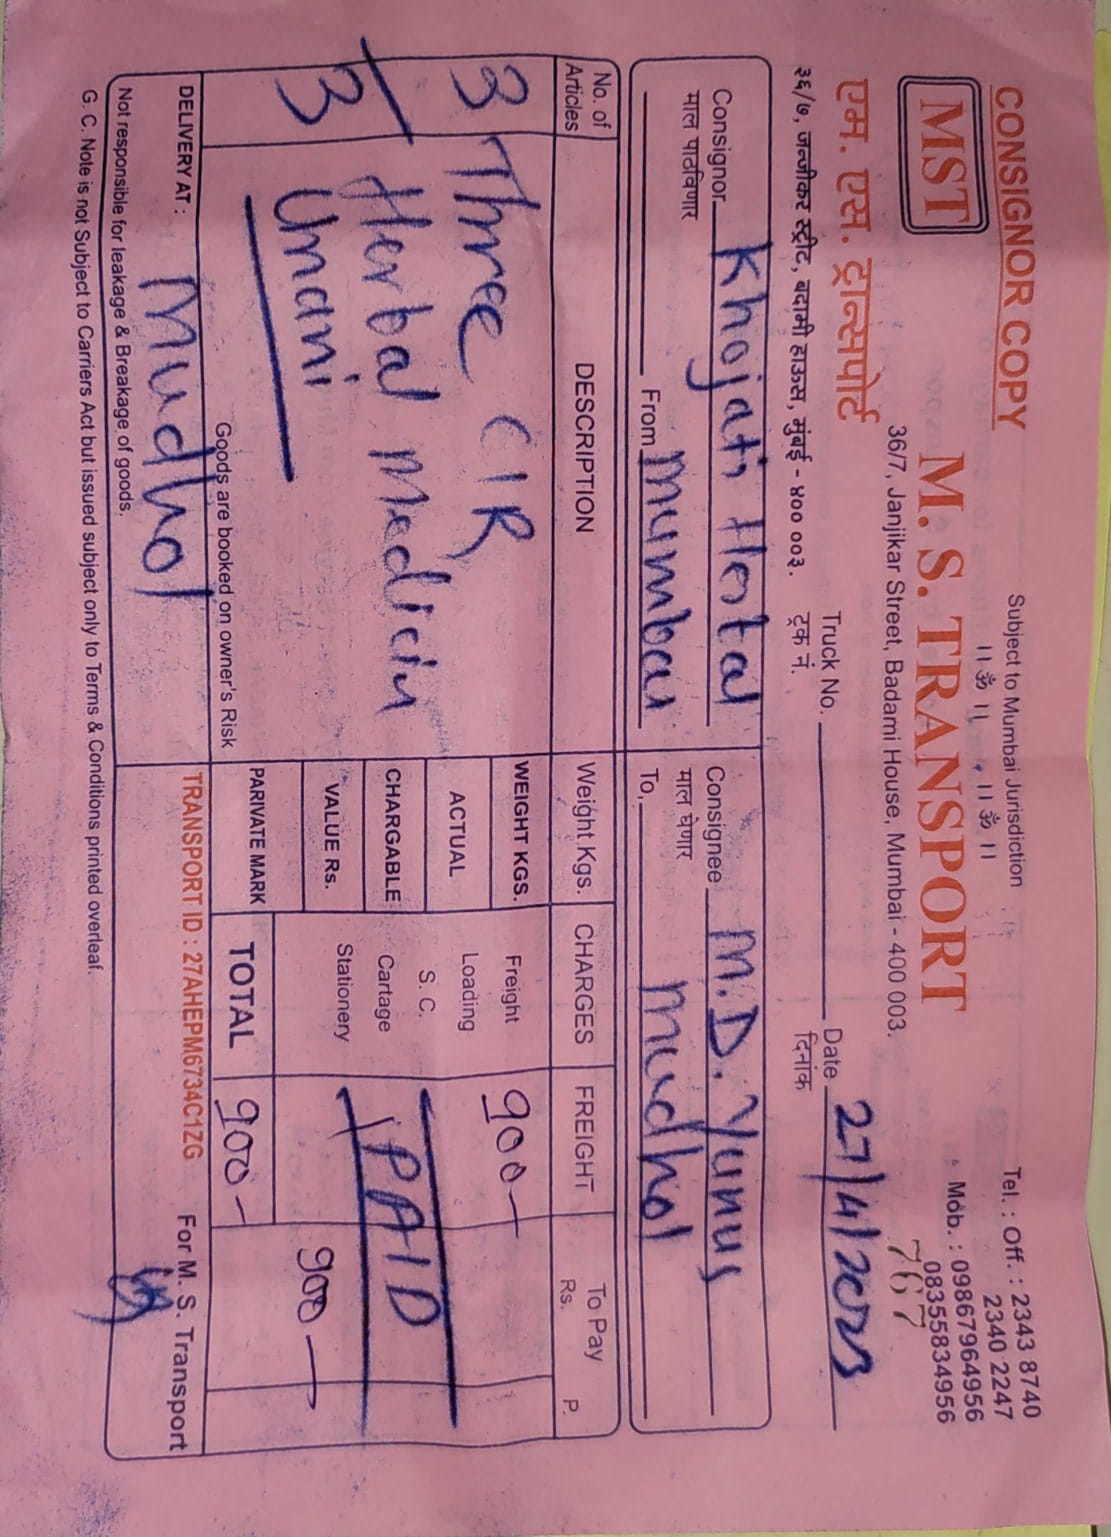 CONSIGNOR COPY
Subject to Mumbai Jurisdiction
॥ ॐ ॥ ॥ ॐ ॥
Tel. : Off. : 2343 8740
2340 2247
Mob. : 09867964956
08355834956
MST
M. S. TRANSPORT
36/7, Janjikar Street, Badami House, Mumbai - 400 003.
767
एम. एस. ट्रान्सपोर्ट
३६/७, जन्जीकर स्ट्रीट, बदामी हाऊस, मुंबई - ४०० ००३.
Truck No.
ट्रक नं.
Date 27/4/2023
दिनांक
Consignor Khojati Hostal
माल पाठविणार
From Mumbai
Consignee M.D. Yunus
माल घेणार
To, Mudhol
No. of Articles
DESCRIPTION
Weight Kgs.
CHARGES
FREIGHT
To Pay
Rs. P.
3 Three C/R
Herbal Medicin
3 Unani
WEIGHT KGS.
ACTUAL
CHARGABLE
VALUE Rs.
PARIVATE MARK
Freight 900-
Loading
S. C.
Cartage
Stationery
PAID
900-
TOTAL 900-
Goods are booked on owner's Risk
DELIVERY AT : Mudhol
TRANSPORT ID : 27AHEPM6734C1ZG
For M. S. Transport
Not responsible for leakage & Breakage of goods.
G. C. Note is not Subject to Carriers Act but issued subject only to Terms & Conditions printed overleaf.